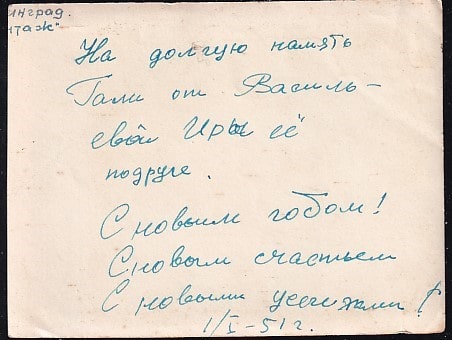 инград.
таж"
На долгую память
Гали от Василь-
евой Иры её
подруге.
С новым годом!
С новым счастьем
С новыми
1/I-51г.